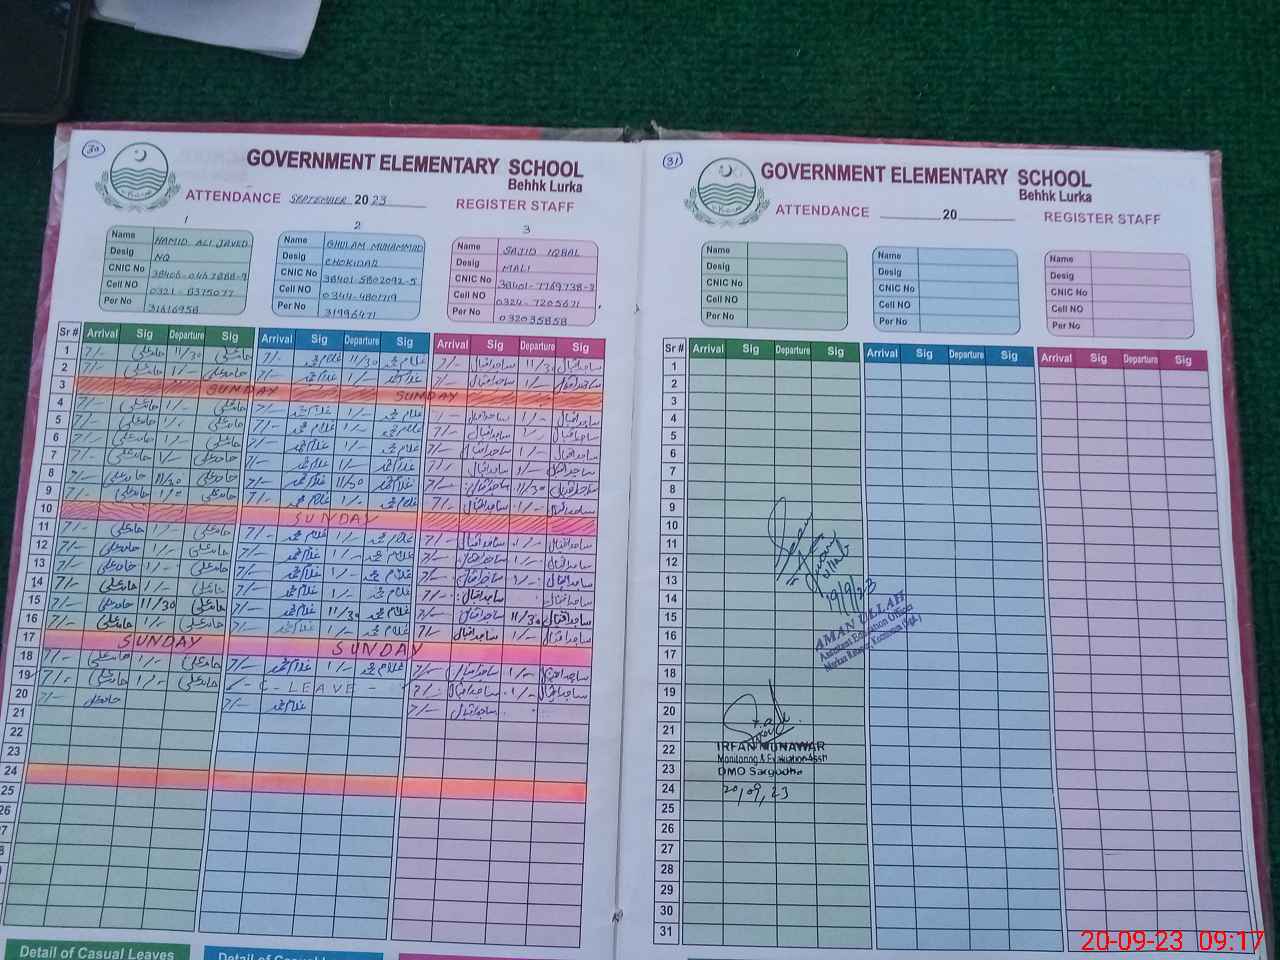 30
GOVERNMENT ELEMENTARY SCHOOL
Behhk Lurka
ATTENDANCE SEPTEMBER 2023 REGISTER STAFF
1 2 3
Name HAMID ALI JAVED
Desig NQ
CNIC No
Cell NO 0321-8375077
Per No 31616958
Name GHULAM MUHAMMAD
Desig CHOKIDAR
CNIC No 38401-5802092-5
Cell NO 0344-4801719
Per No 31996471
Name SAJID IQBAL
Desig MALI
CNIC No
Cell NO 0324-7205671
Per No 032035858
Sr # Arrival Sig Departure Sig Arrival Sig Departure Sig Arrival Sig Departure Sig
1 7/- حامد علی 11/30 حامد علی 7/- غلام محمد 11/30 غلام محمد 7/- ساجد اقبال 11/30 ساجد اقبال
2 7/- حامد علی 1/- حامد علی 7/- غلام محمد 1/- غلام محمد 7/- ساجد اقبال 1/- ساجد اقبال
3 SUNDAY SUNDAY
4 7/- حامد علی 1/- حامد علی 7/- غلام محمد 1/- غلام محمد 7/- ساجد اقبال 1/- ساجد اقبال
5 7/- حامد علی 1/- حامد علی 7/- غلام محمد 1/- غلام محمد 7/- ساجد اقبال 1/- ساجد اقبال
6 7/- حامد علی 1/- حامد علی 7/- غلام محمد 1/- غلام محمد 7/- ساجد اقبال 1/- ساجد اقبال
7 7/- حامد علی 1/- حامد علی 7/- غلام محمد 1/- غلام محمد 7/- ساجد اقبال 1/- ساجد اقبال
8 7/- حامد علی 11/30 حامد علی 7/- غلام محمد 11/30 غلام محمد 7/- ساجد اقبال 11/30 ساجد اقبال
9 7/- حامد علی حامد علی 7/- غلام محمد 1/- غلام محمد 7/- ساجد اقبال 1/- ساجد اقبال
10 SUNDAY
11 7/- حامد علی 1/- حامد علی 7/- غلام محمد 1/- غلام محمد 7/- ساجد اقبال 1/- ساجد اقبال
12 7/- حامد علی 1/- حامد علی 7/- غلام محمد 1/- غلام محمد 7/- ساجد اقبال 1/- ساجد اقبال
13 7/- حامد علی 1/- حامد علی 7/- غلام محمد 1/- غلام محمد 7/- ساجد اقبال 1/- ساجد اقبال
14 7/- حامد علی 1/- حامد علی 7/- غلام محمد 1/- غلام محمد 7/- ساجد اقبال ساجد اقبال
15 7/- حامد علی 11/30 حامد علی 7/- غلام محمد 11/30 غلام محمد 7/- ساجد اقبال 11/30 ساجد اقبال
16 7/- حامد علی 1/- حامد علی 7/- غلام محمد 1/- غلام محمد 7/- ساجد اقبال 1/- ساجد اقبال
17 SUNDAY SUNDAY
18 7/- حامد علی 1/- حامد علی 7/- غلام محمد 1/- غلام محمد 7/- ساجد اقبال 1/- ساجد اقبال
19 7/- حامد علی 1/- حامد علی - C-LEAVE - 7/- ساجد اقبال 1/- ساجد اقبال
20 7/- حامد علی 7/- غلام محمد 7/- ساجد اقبال
21
22
23
24
25
26
27
28
Detail of Casual Leaves
Detail of Casual Leaves
31
GOVERNMENT ELEMENTARY SCHOOL
Behhk Lurka
ATTENDANCE 20 REGISTER STAFF
Name
Desig
CNIC No
Cell NO
Per No
Name
Desig
CNIC No
Cell NO
Per No
Name
Desig
CNIC No
Cell NO
Per No
Sr # Arrival Sig Departure Sig Arrival Sig Departure Sig Arrival Sig Departure Sig
1
2
3
4
5
6
7
8
9
10
11
12
13
14
15
16
17
18
19
20
21
22
23
24
25
26
27
28
29
30
31
19/9/23
AMAN ULLAH
Assistant Education Officer
IRFAN MUNAWAR
Monitoring & Evaluation Asstt
DMO Sargodha
20/09/23
20-09-23 09:17